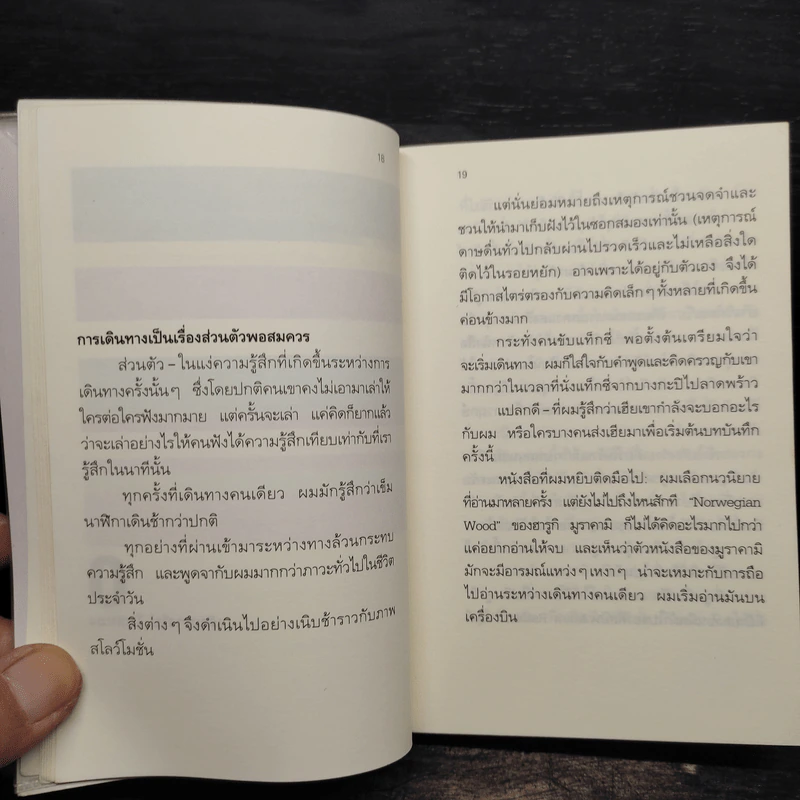 18
การเดินทางเป็นเรื่องส่วนตัวพอสมควร
ส่วนตัว – ในแง่ความรู้สึกที่เกิดขึ้นระหว่างการ
เดินทางครั้งนั้นๆ ซึ่งโดยปกติคนเขาคงไม่เอามาเล่าให้
ใครต่อใครฟังมากมาย แต่ครั้นจะเล่า แค่คิดก็ยากแล้ว
ว่าจะเล่าอย่างไรให้คนฟังได้ความรู้สึกเทียบเท่ากับที่เรา
รู้สึกในนาทีนั้น
ทุกครั้งที่เดินทางคนเดียว ผมมักรู้สึกว่าเข็ม
นาฬิกาเดินช้ากว่าปกติ
ทุกอย่างที่ผ่านเข้ามาระหว่างทางล้วนกระทบ
ความรู้สึก และพูดจากับผมมากกว่าภาวะทั่วไปในชีวิต
ประจำวัน
สิ่งต่างๆ จึงดำเนินไปอย่างเนิบช้าราวกับภาพ
สโลว์โมชั่น
19
แต่นั่นย่อมหมายถึงเหตุการณ์ชวนจดจำและ
ชวนให้นำมาเก็บฝังไว้ในซอกสมองเท่านั้น (เหตุการณ์
ดาษดื่นทั่วไปกลับผ่านไปรวดเร็วและไม่เหลือสิ่งใด
ติดไว้ในรอยหยัก) อาจเพราะได้อยู่กับตัวเอง จึงได้
มีโอกาสไตร่ตรองกับความคิดเล็กๆ ทั้งหลายที่เกิดขึ้น
ค่อนข้างมาก
กระทั่งคนขับแท็กซี่ พอตั้งต้นเตรียมใจว่า
จะเริ่มเดินทาง ผมก็ใส่ใจกับคำพูดและคิดครวญกับเขา
มากกว่าในเวลาที่นั่งแท็กซี่จากบางกะปิไปลาดพร้าว
แปลกดี – ที่ผมรู้สึกว่าเฮียเขากำลังจะบอกอะไร
กับผม หรือใครบางคนส่งเฮียมาเพื่อเริ่มต้นบทบันทึก
ครั้งนี้
หนังสือที่ผมหยิบติดมือไป: ผมเลือกนวนิยาย
ที่อ่านมาหลายครั้ง แต่ยังไม่ไปถึงไหนสักที “Norwegian
Wood” ของฮารูกิ มูราคามิ ก็ไม่ได้คิดอะไรมากไปกว่า
แค่อยากอ่านให้จบ และเห็นว่าตัวหนังสือของมูราคามิ
มักจะมีอารมณ์แหว่งๆ เหงาๆ น่าจะเหมาะกับการถือ
ไปอ่านระหว่างเดินทางคนเดียว ผมเริ่มอ่านมันบน
เครื่องบิน